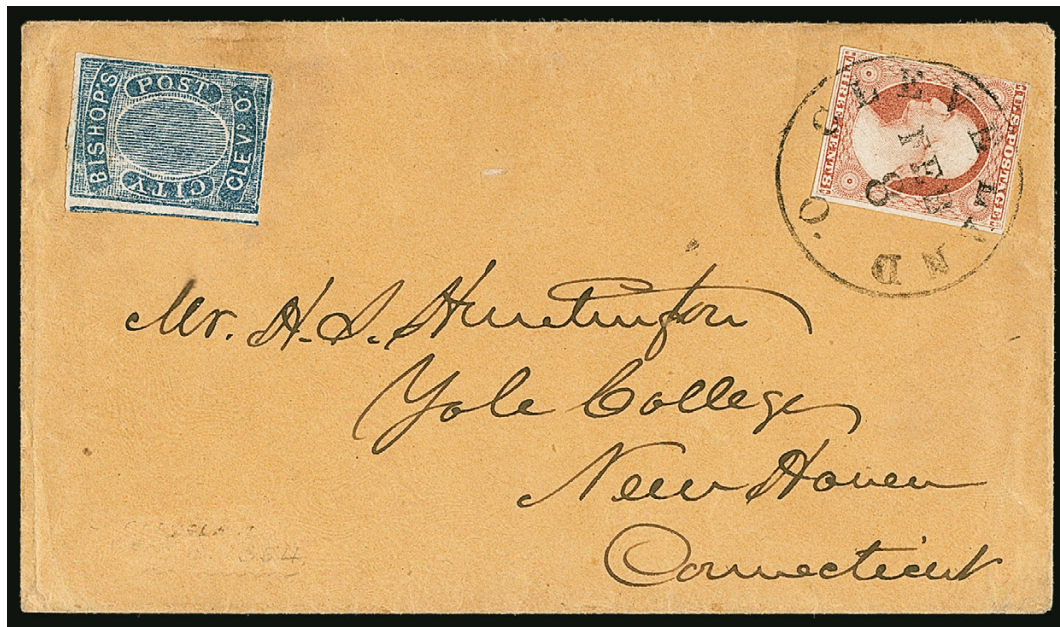 BISHOP'S
POST
CITY
CLEVD. O.
U.S. POSTAGE
THREE CENTS
CLEVELAND O.
FEB
8
Mr. H. S. Huntington
Yale College
New Haven
Connecticut